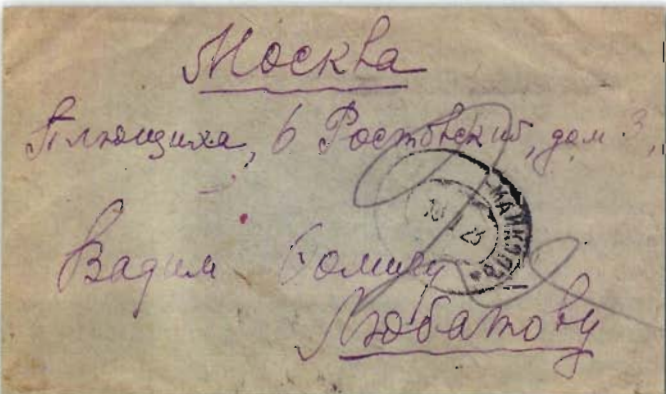 Москва
Плющиха, 6 Ростовский, дом 3,
Вадим
Любатову
МАЙКОПЪ
25